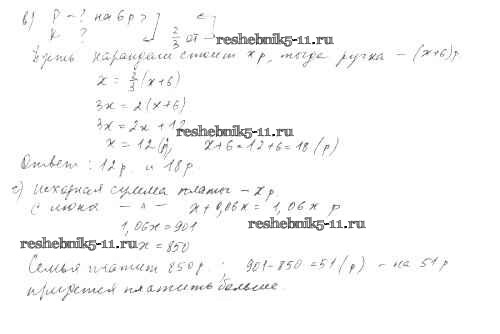 в) Р - ? на 6 р >
К ?
2/3 от
reshebnik5-11.ru
Пусть карандаш стоит x р, тогда ручка - (x+6) р
x = 2/3 (x+6)
3x = 2(x+6)
3x = 2x + 12
reshebnik5-11.ru
x = 12 (р), x+6 = 12+6 = 18 (р)
Ответ: 12 р. и 18 р.
с) исходная сумма платы - x р,
reshebnik5-11.ru
С июня - " - x + 0,06x = 1,06x р
1,06x = 901
reshebnik5-11.ru
x = 850
Семья платит 850 р; 901 - 850 = 51 (р) - на 51 р
придется платить больше.